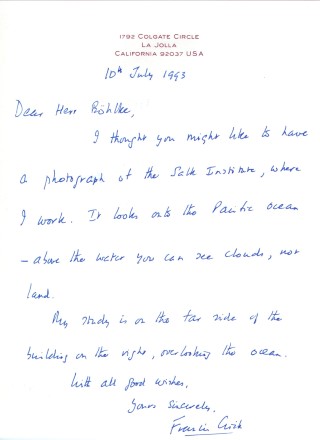 1792 COLGATE CIRCLE
LA JOLLA
CALIFORNIA 92037 USA
10th July 1993
Dear Herr Böhlke,
I thought you might like to have
a photograph of the Salk Institute, where
I work. It looks onto the Pacific Ocean
– above the water you can see clouds, not
land.
My study is on the far side of the
building on the right, overlooking the ocean.
With all good wishes,
Yours sincerely,
Francis Crick